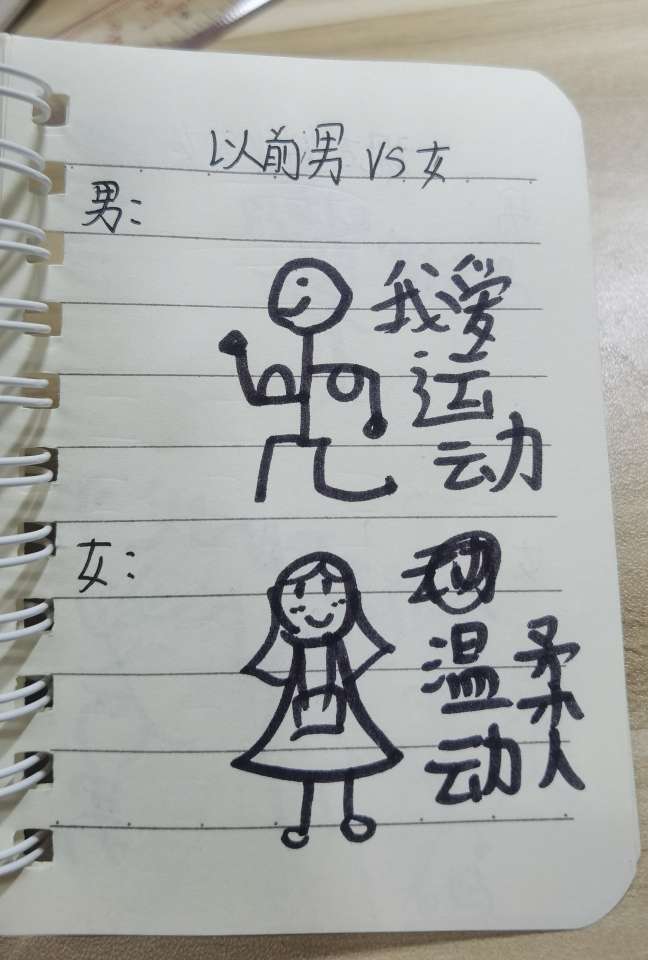 以前男 VS 女
男：
我爱
运
动
女：
温柔
动人